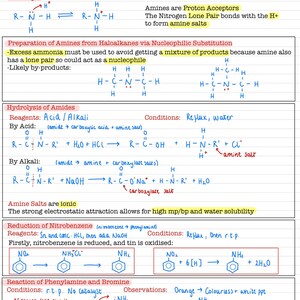 Amines are Proton Acceptors
The Nitrogen Lone Pair bonds with the H+
to form amine salts
Preparation of Amines from Haloalkanes via Nucleophilic Substitution
-Excess ammonia must be used to avoid getting a mixture of products because amine also
has a lone pair so could act as a nucleophile
-Likely by-products:
Hydrolysis of Amides
Reagents: Acid / Alkali Conditions: Reflux, water
By Acid: (amide → carboxylic acid + amine salt)
+ H₂O + HCl →
amine salt
By Alkali: (amide → amine + carboxylate salt)
+ NaOH →
carboxylate salt
Amine Salts are ionic
The strong electrostatic attraction allows for high mp/bp and water solubility
Reduction of Nitrobenzene
Reagents: Sn and conc. HCl, then add NaOH Conditions: Reflux, then r.t.p.
Firstly, nitrobenzene is reduced, and tin is oxidised:
NO₂ NH₃⁺Cl⁻ NH₂ NO₂ + 6[H] → NH₂ + 2H₂O
Reaction of Phenylamine and Bromine
Conditions: r.t.p. No catalyst Observations: Orange → Colourless + white ppt